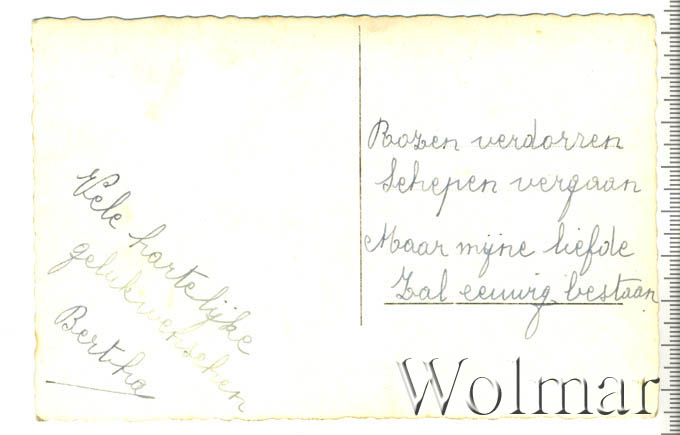 Vele hartelijke
gelukwenschen
Bertha
Rozen verdorren
Schepen vergaan
Maar mijne liefde
Zal eeuwig bestaan
Wolmar